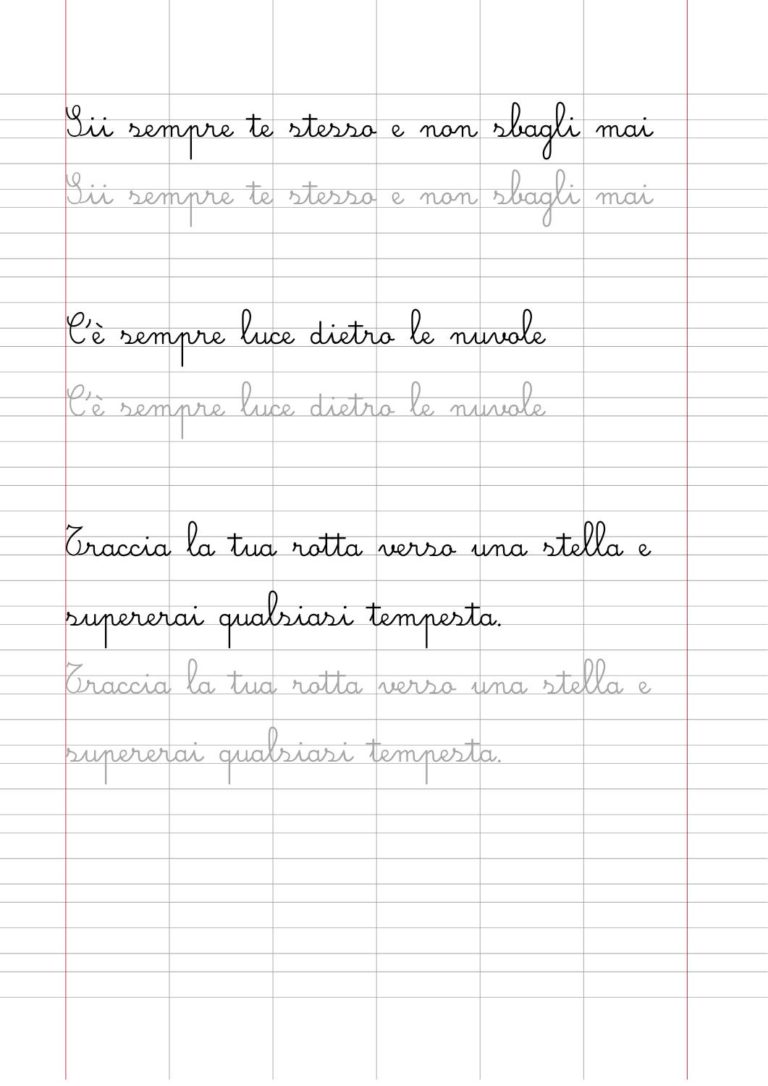 Sii sempre te stesso e non sbagli mai
Sii sempre te stesso e non sbagli mai
C'è sempre luce dietro le nuvole
C'è sempre luce dietro le nuvole
Traccia la tua rotta verso una stella e
supererai qualsiasi tempesta.
Traccia la tua rotta verso una stella e
supererai qualsiasi tempesta.